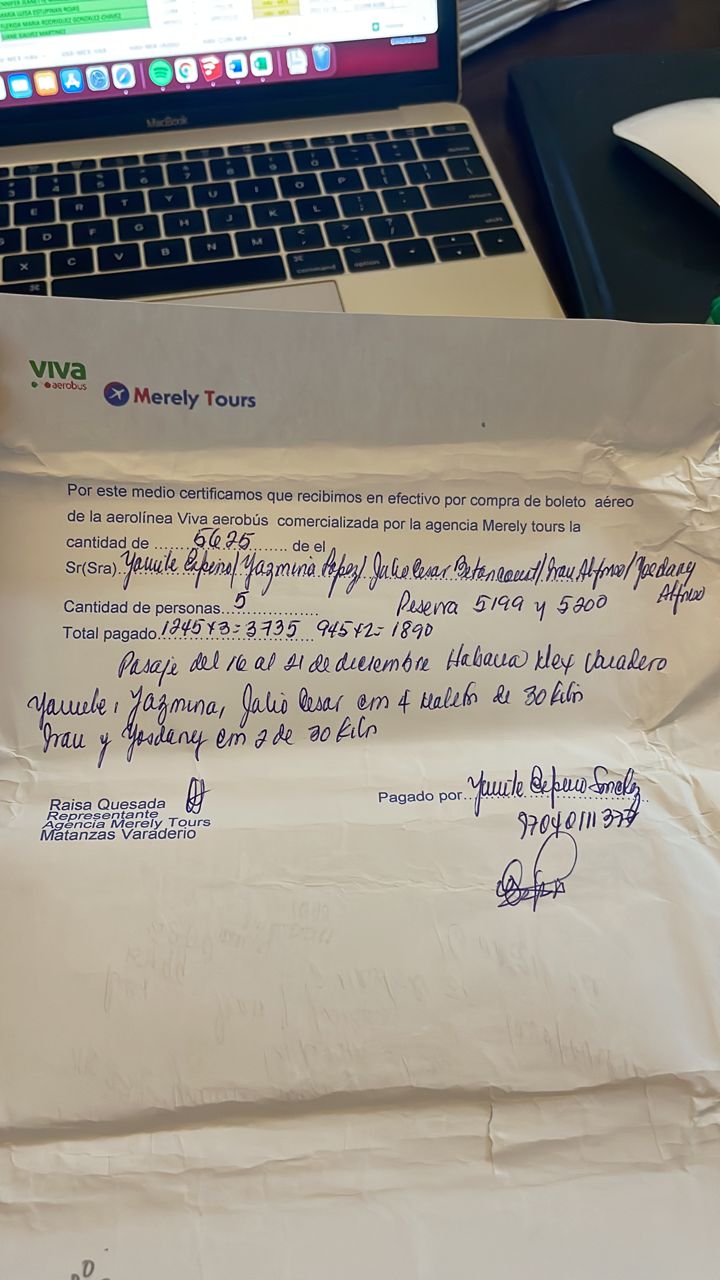 MARIA LUISA ESTUPIÑAN ROJAS
MacBook
viva
aerobus
Merely Tours
Por este medio certificamos que recibimos en efectivo por compra de boleto aéreo
de la aerolínea Viva aerobús comercializada por la agencia Merely tours la
cantidad de 5625 de el
Sr(Sra). Yamile Cepero/ Yazmina Lopez/ Julio Cesar Betancourt/ Irau Alfonso/ Yosdany
Alfonso
Cantidad de personas. 5
Reserva 5199 y 5200
Total pagado 1245x3=3735 945x2=1890
Pasaje del 16 al 21 de diciembre Habana Mex Varadero
Yamile, Yazmina, Julio Cesar con 4 maletas de 30 kilos
Irau y Yosdany con 2 de 30 kilos
Raisa Quesada
Representante
Agencia Merely Tours
Matanzas Varaderio
Pagado por. Yamile Cepero